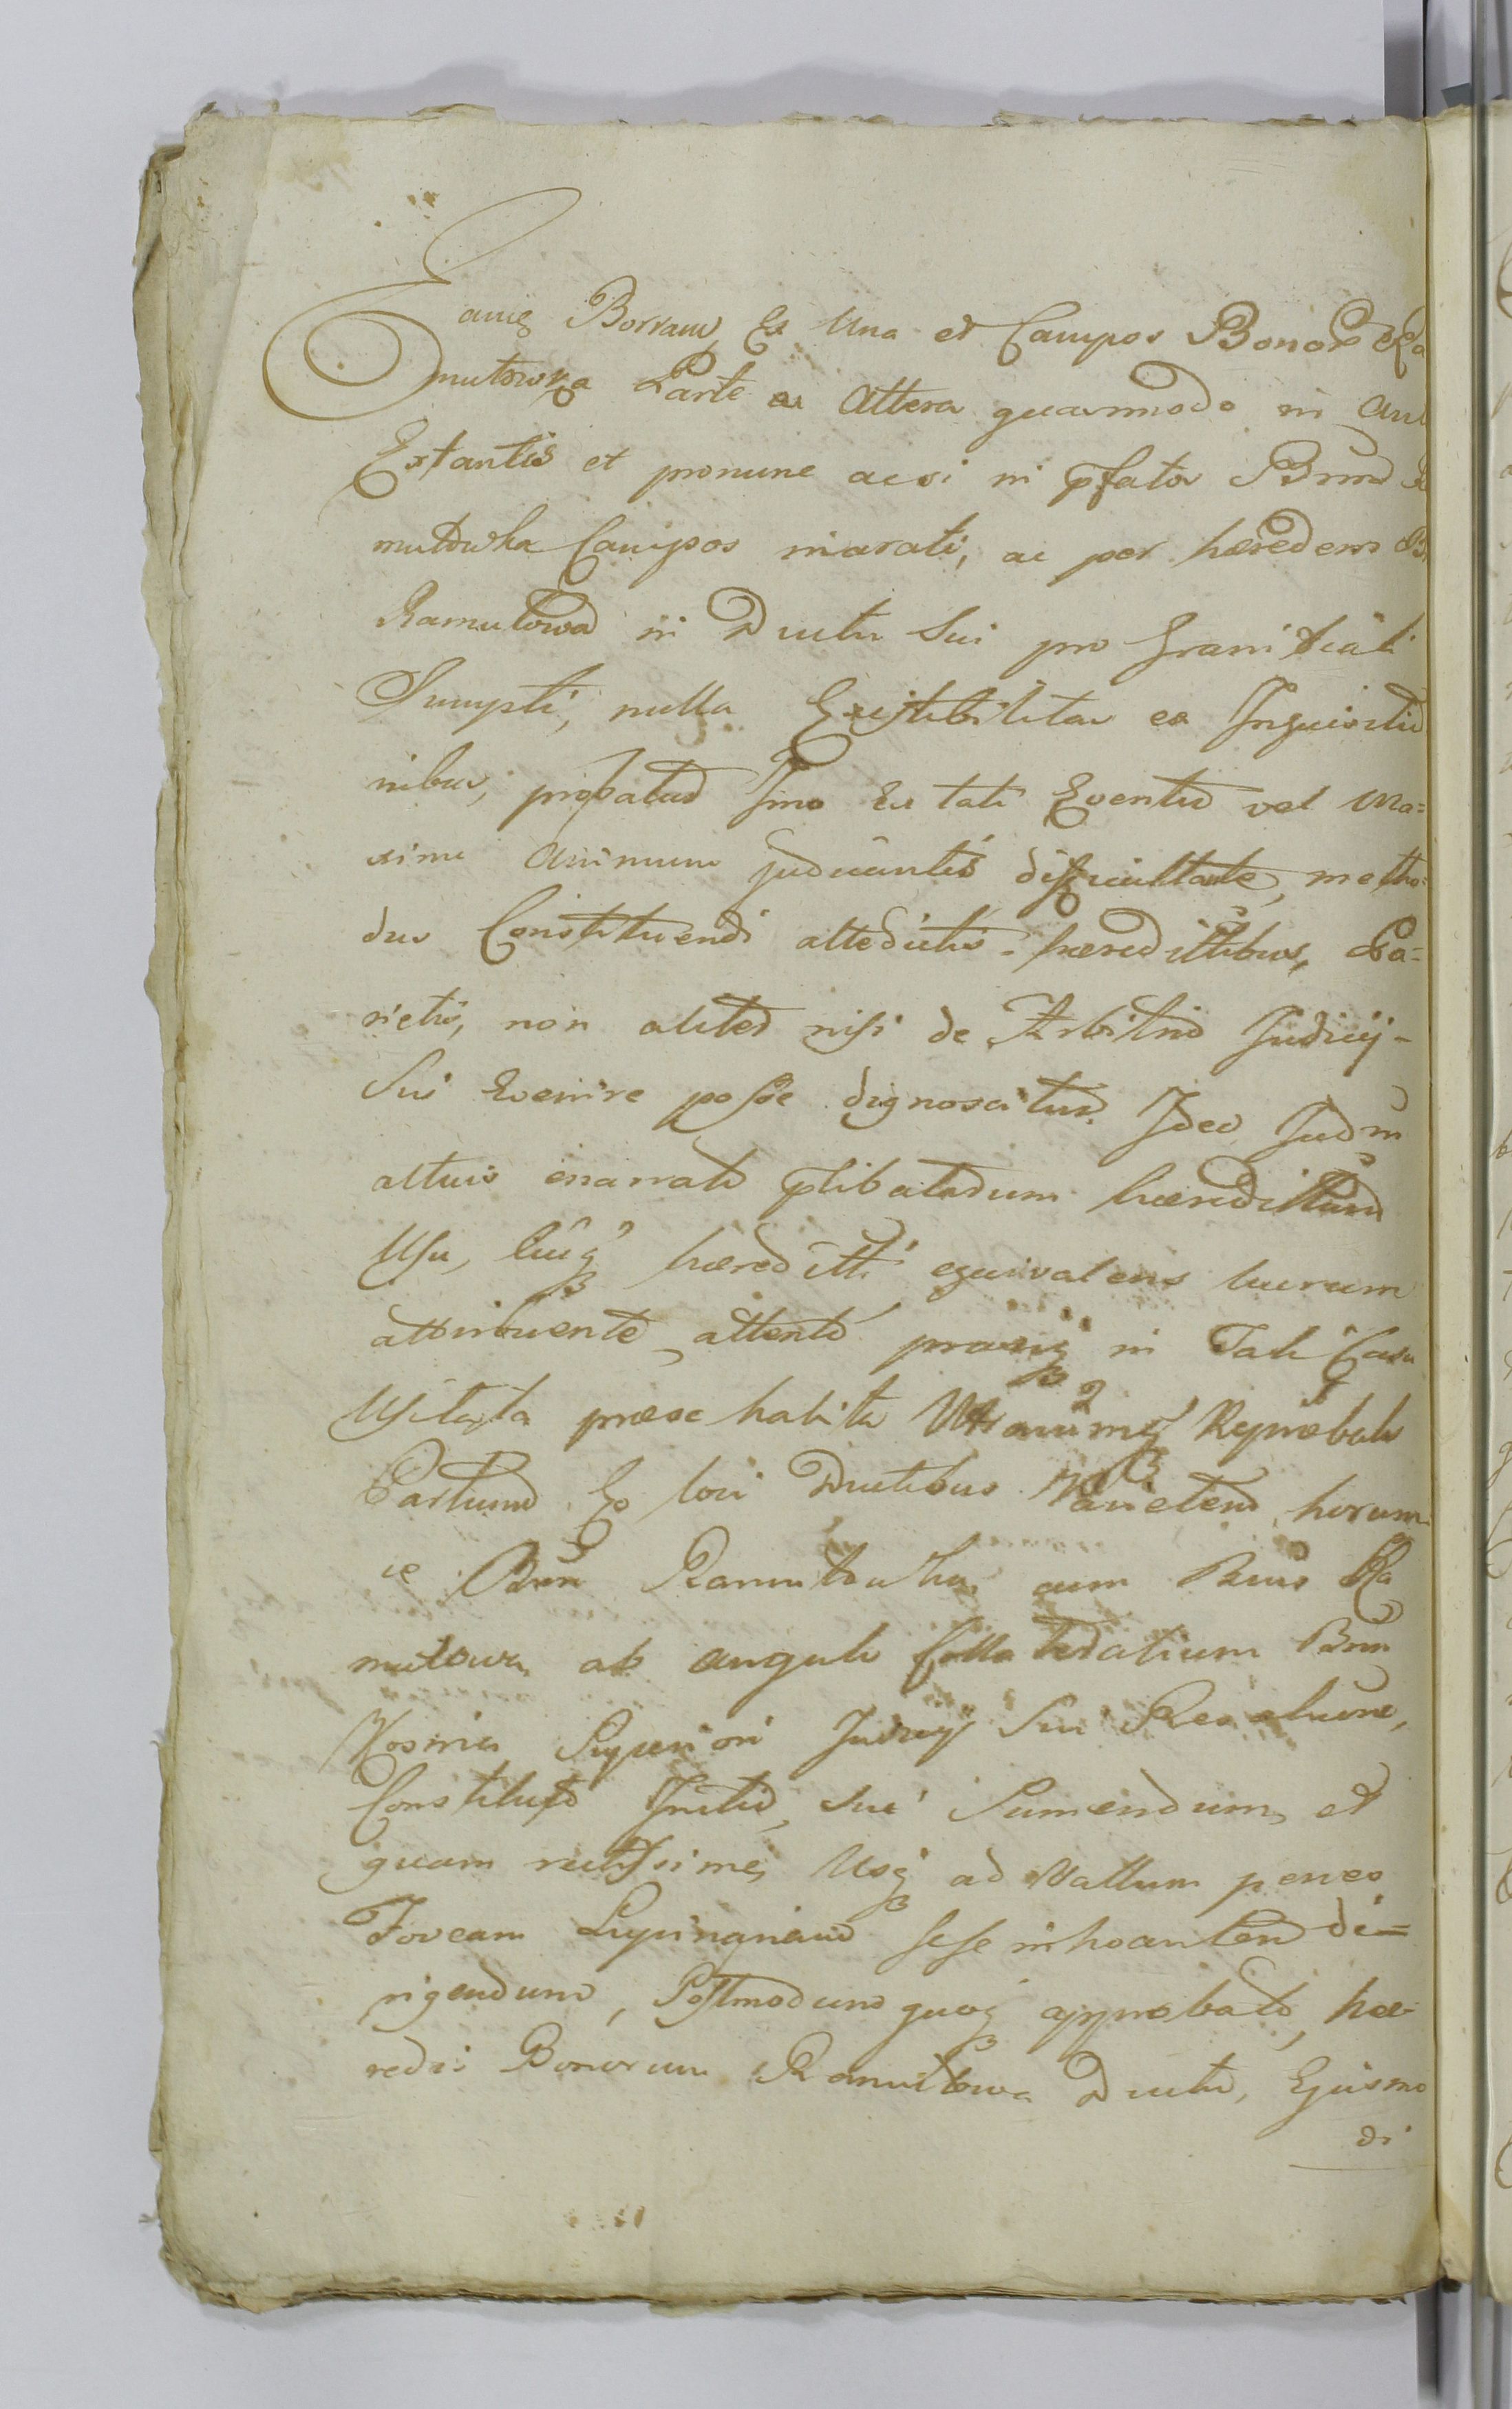 Borram Ex Una et Campos Bonor Ra
mutowka Parte ex Altera quammodo in
Extantis et pronunc acsi in pfatos Bnrm
mutowka Campos inarati, ac per haeredem
Ramutowa in Ductu Sui pro Graniciali
Sumpti, nulla Existibilitas ex Inquisitio
nibus, probatur Imo Ex tali Eventu vel Ma=
xime Animum judicantis difficultante, metho=
dus Constituendi attedictis haeredittibus, Pa=
rietis, non aliter nisi de Arbitrio Judicij
Sui Evenire posse dignoscitur. Ideo Judm
altius enarrato plibatarum haeredittum
Usu, cuiq haereditti equivalens lucrum
attribuente, attento in Tali Casu
Usitata praxe habita Reprobatis
Partium Ex loci Ductibus Parietem, horum
ce Bnrm Ramutowka cum Bnis Ra
mutowa ab angulo Collateralium Bnrm
Kosmin Superiori Judicij Sui Resolutione,
Constituto Initio, sui Sumendum, et
quam rectissime, Usq ad Vallum penes
Foveam sese inhoantem di=
rigendum, Postmodum quoq approbato, hae=
redis Bonorum Ramutowa Ductu, Ejusmo
di